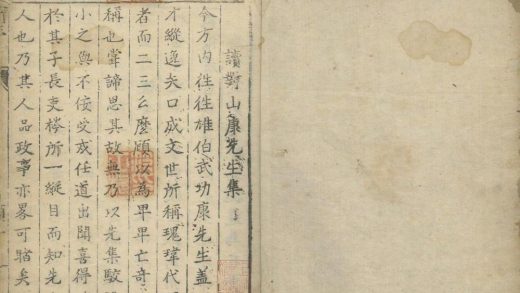 讀對山康先生集
今方內往往雄伯武功康先生蓋
才縱逸矢口成文世所稱瑰瑋代
者而二三么麼顧以為卑卑亡奇
稱也嘗諦思其故無乃以先集駁
小之與不佞受戒任道出聞喜得
於其子長吏所一縱目而知先
人也乃其人品政事亦畧可睹矣